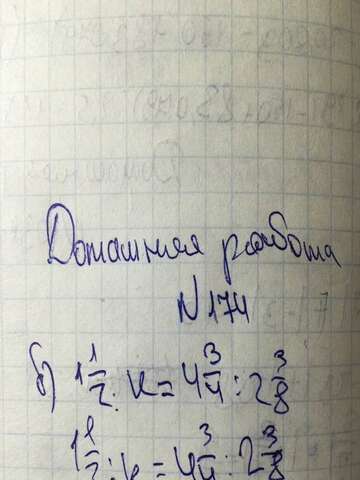 Домашняя работа
N 174
б) 1 1/2 : к = 4 3/4 : 2 3/8
1 1/2 : к = 4 3/4 : 2 3/8